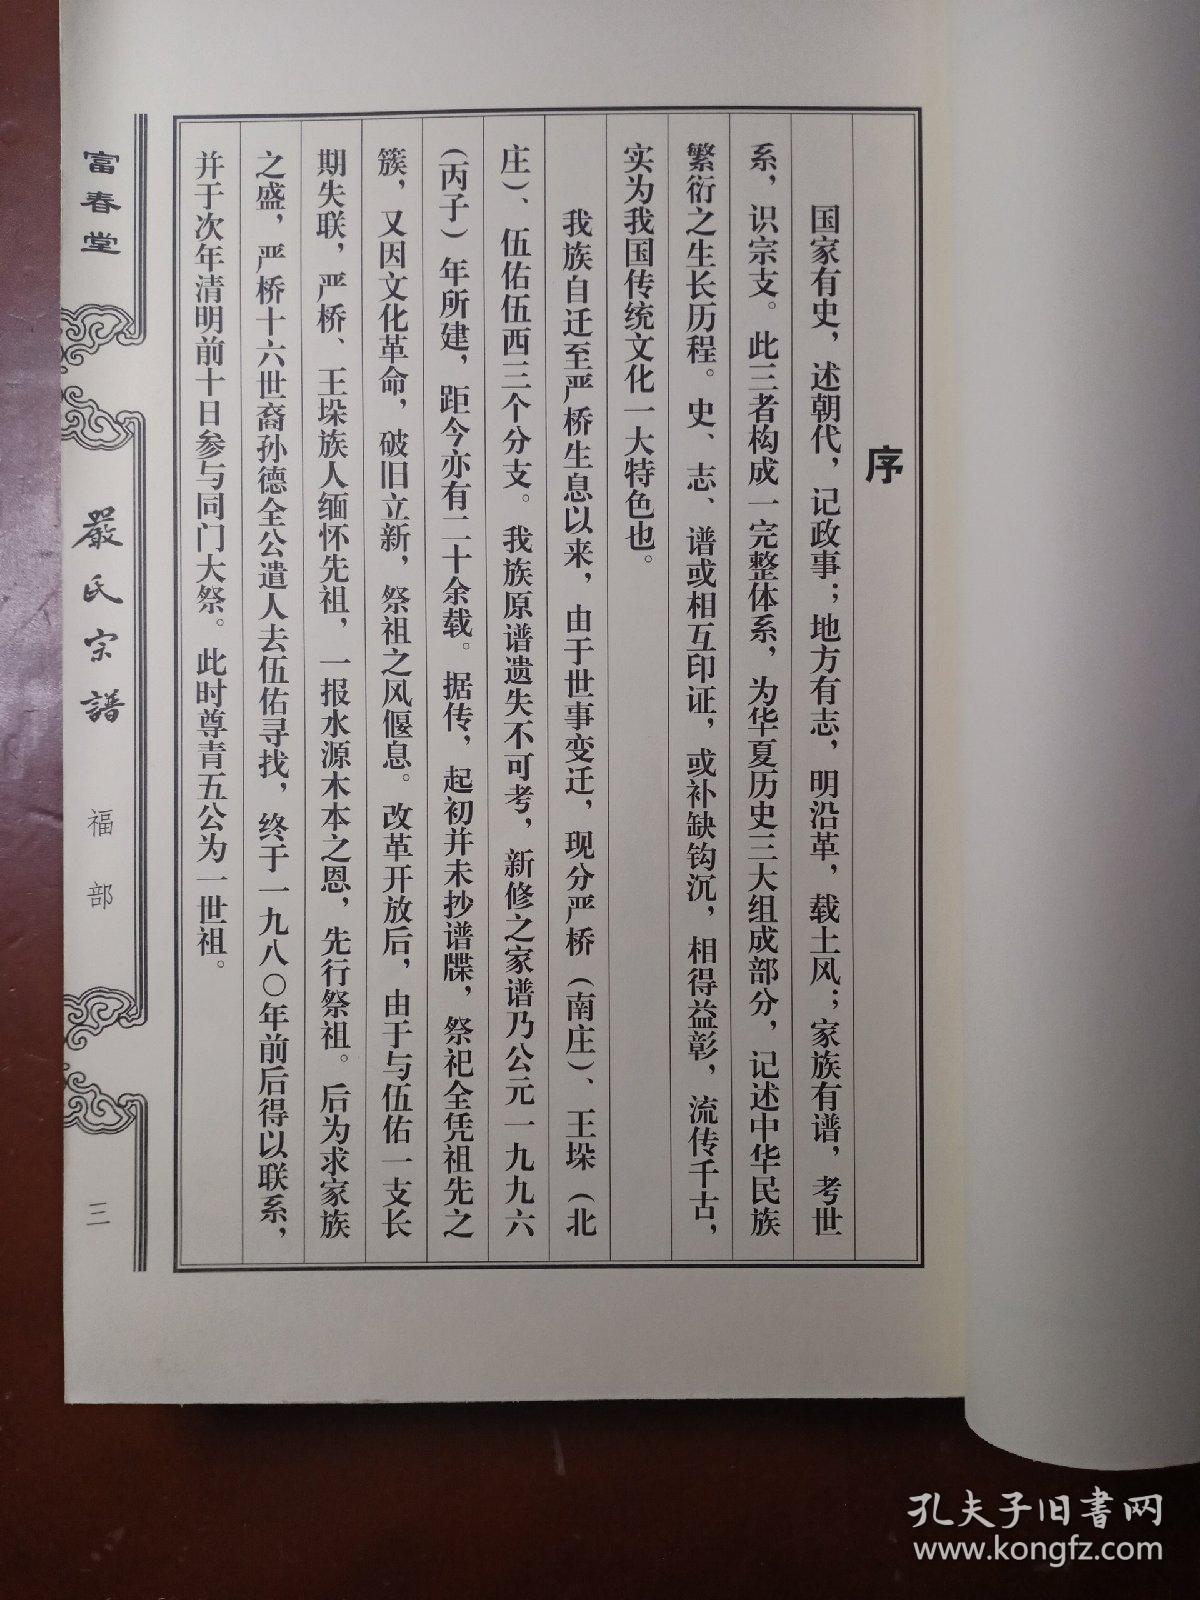 序
国家有史，述朝代，记政事；地方有志，明沿革，载土风；家族有谱，考世
系，识宗支。此三者构成一完整体系，为华夏历史三大组成部分，记述中华民族
繁衍之生长历程。史、志、谱或相互印证，或补缺钩沉，相得益彰，流传千古，
实为我国传统文化一大特色也。
我族自迁至严桥生息以来，由于世事变迁，现分严桥（南庄）、王垛（北
庄）、伍佑伍西三个分支。我族原谱遗失不可考，新修之家谱乃公元一九九六
（丙子）年所建，距今亦有二十余载。据传，起初并未抄谱牒，祭祀全凭祖先之
簇，又因文化革命，破旧立新，祭祖之风偃息。改革开放后，由于与伍佑一支长
期失联，严桥、王垛族人缅怀先祖，一报水源木本之恩，先行祭祖。后为求家族
之盛，严桥十六世裔孙德全公遣人去伍佑寻找，终于一九八〇年前后得以联系，
并于次年清明前十日参与同门大祭。此时尊青五公为一世祖。
富春堂
嚴氏宗譜
福部
三
孔夫子旧書网
www.kongfz.com